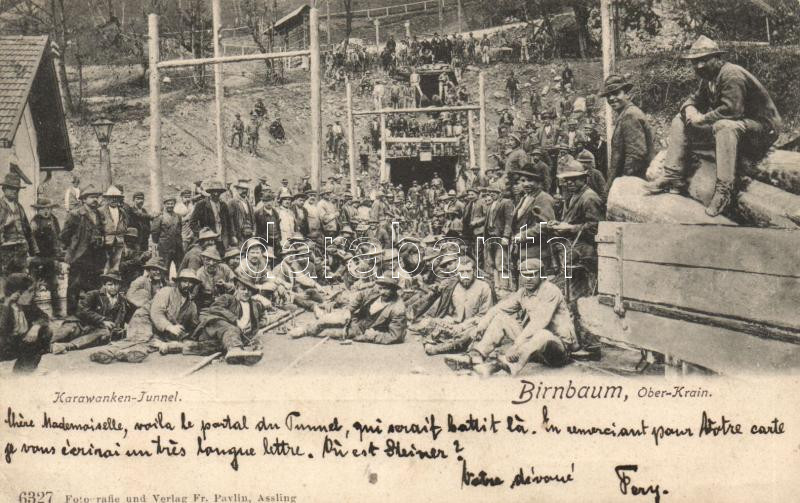 darabanth
Karawanken-Tunnel.
Birnbaum, Ober-Krain.
Chère Mademoiselle, voila le portal du Tunnel, qui serait battit là. En remerciant pour Votre carte
je vous écrirai un très longue lettre. Où est Steiner?
Votre dévoué Fery.
6327 Fotografie und Verlag Fr. Pavlin, Assling